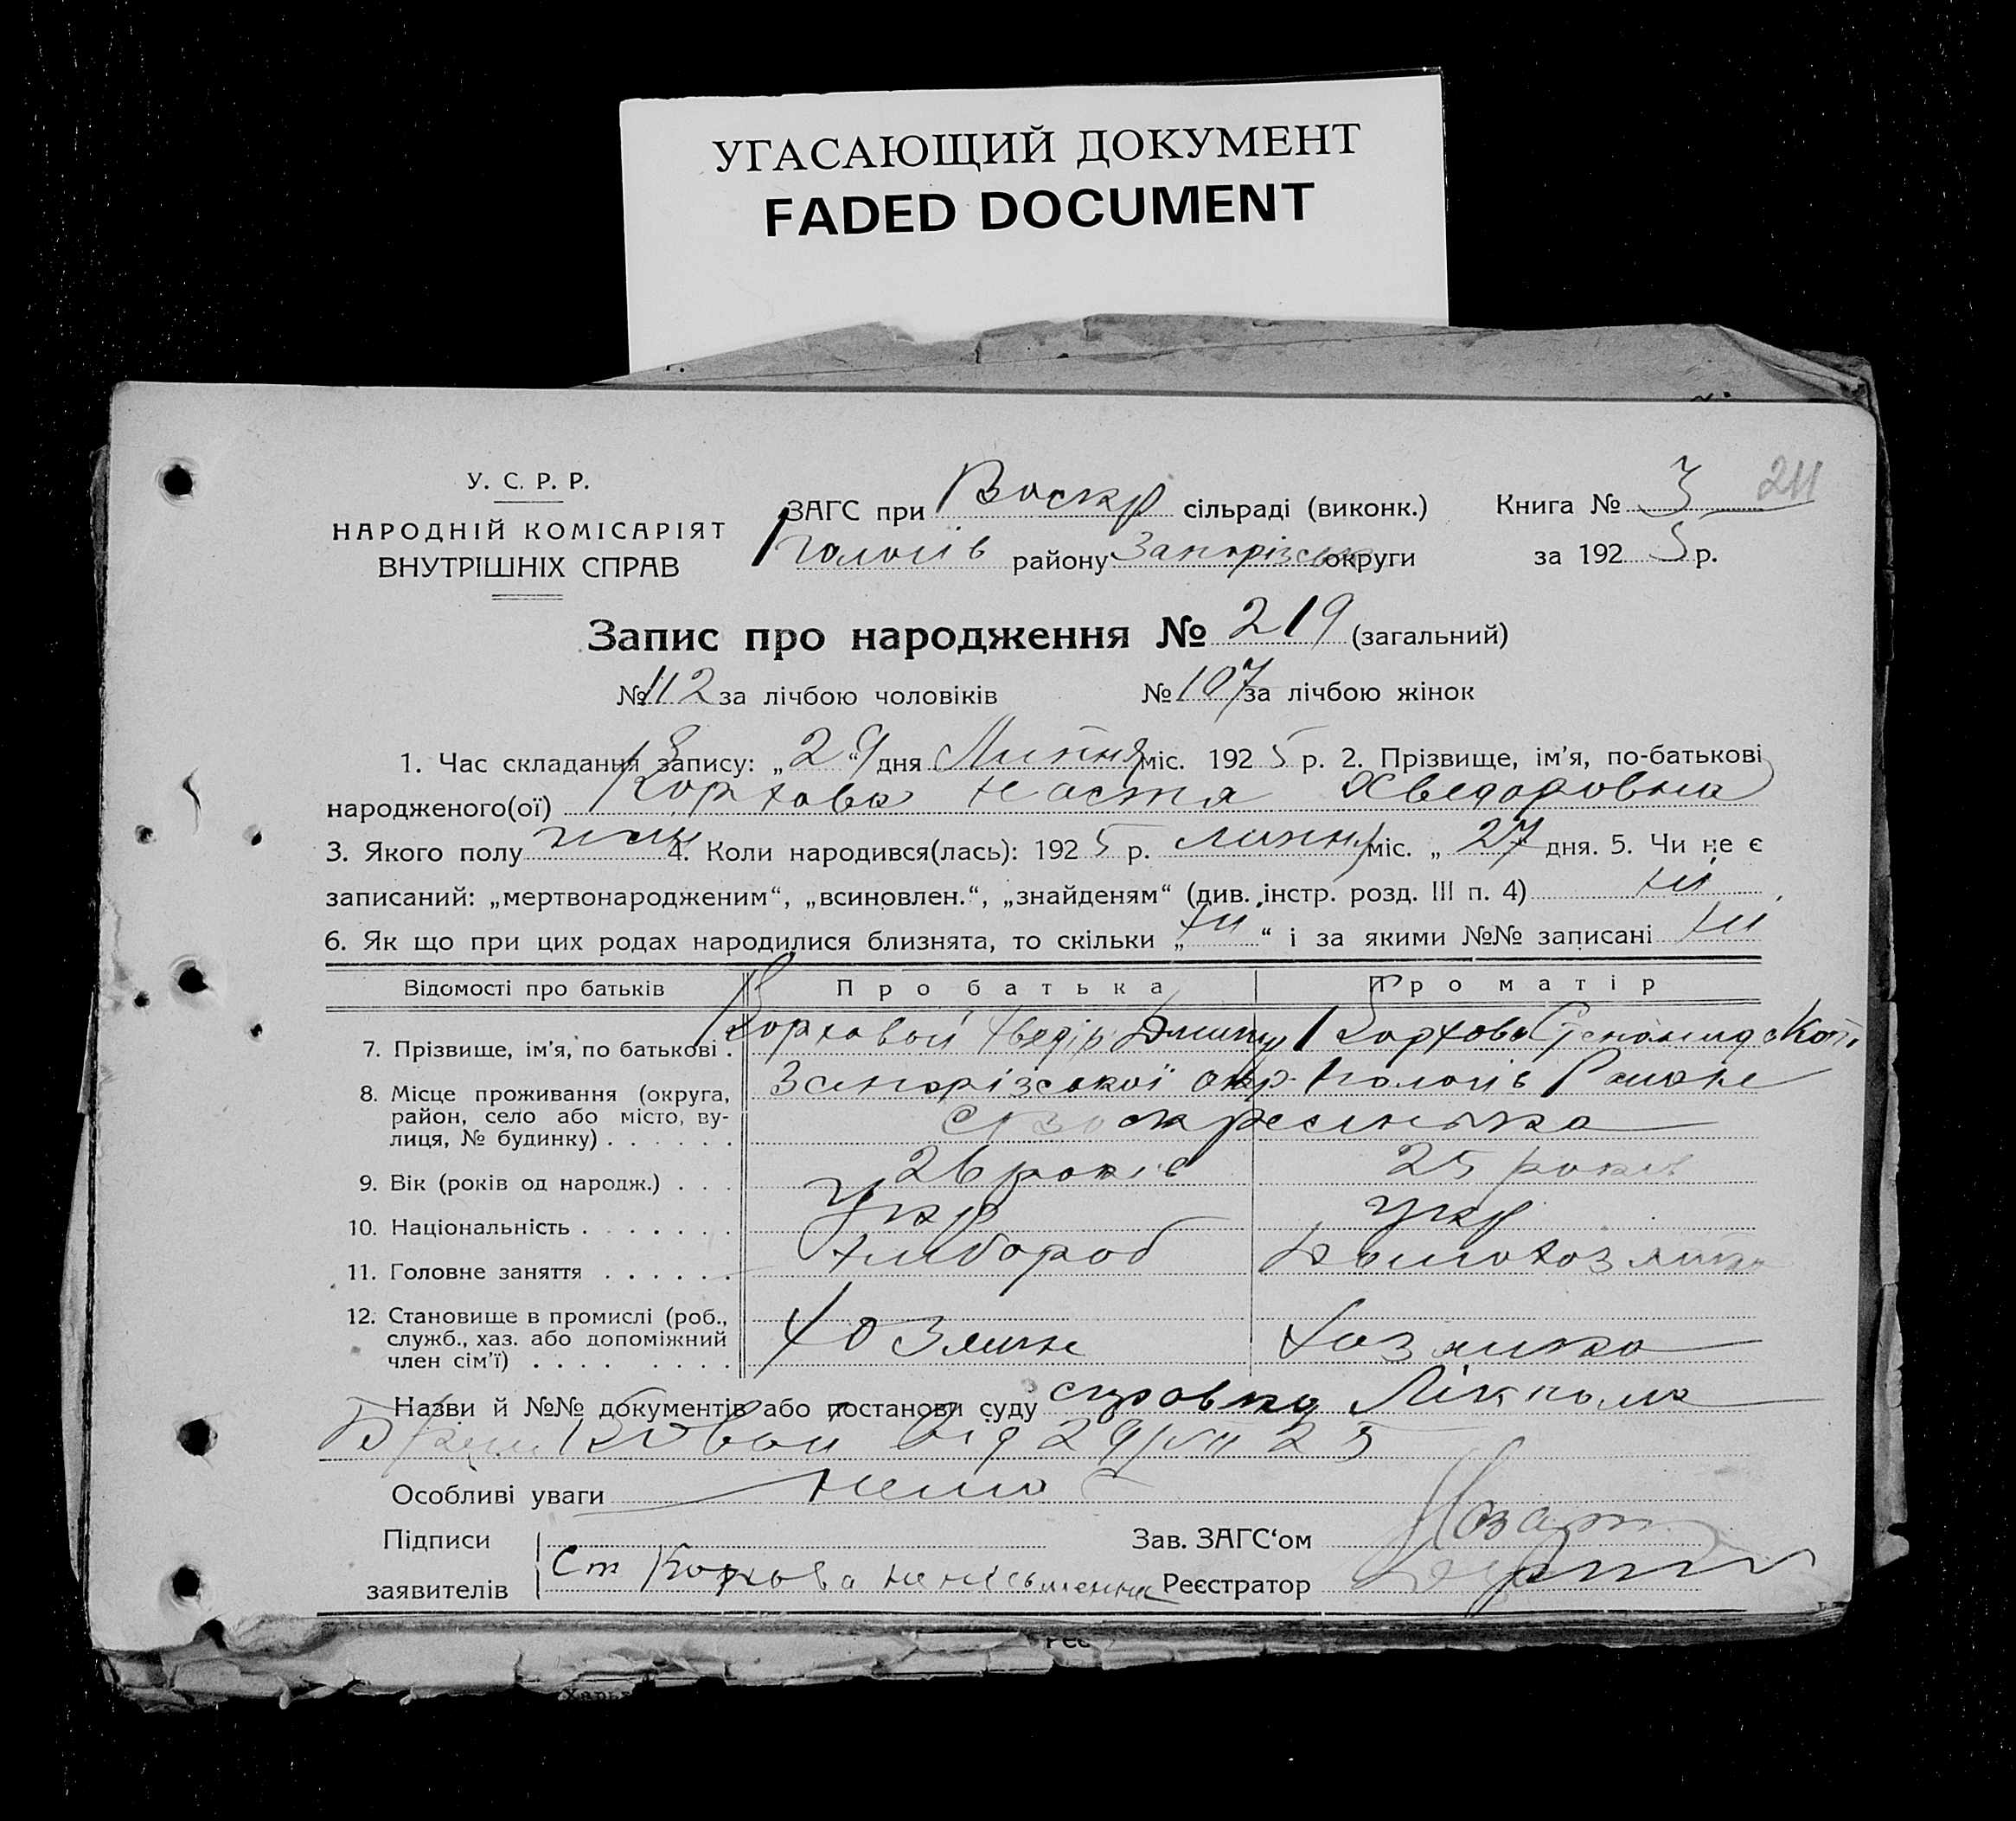 УГАСАЮЩИЙ ДОКУМЕНТ
FADED DOCUMENT
211
У. С. Р. Р.
НАРОДНІЙ КОМІСАРІЯТ
ВНУТРІШНІХ СПРАВ
ЗАГС при Воскр сільраді (виконк.) Книга № 3
Пологів району Запорізськ округи за 1925 р.
Запис про народження № 219 (загальний)
№ 112 за лічбою чоловіків № 107 за лічбою жінок
1. Час складання запису: „29“ дня Липня міс. 1925 р. 2. Прізвище, ім’я, по-батькові
народженого(ої) Корхова Настя Хведоровна
3. Якого полу жін 4. Коли народився(лась): 1925 р. липня міс. „27“ дня. 5. Чи не є
записаний: „мертвонародженим“, „всиновлен.“, „знайденям“ (див. інстр. розд. III п. 4) ні
6. Як що при цих родах народилися близнята, то скільки „ні“ і за якими №№ записані ні
Відомості про батьків Про батька Про матір
7. Прізвище, ім’я, по батькові . Корховой Хведір Корхова Степанида
8. Місце проживання (округа, район, село або місто, вулиця, № будинку) . . . . . . Запорізської окр. Пологів Района
с Воскресенька
9. Вік (років од народж.) . . . 26 років 25 років
10. Національність . . . . . . . Укр Укр
11. Головне заняття . . . . . . хлібороб Домохозяйка
12. Становище в промислі (роб., служб., хаз. або допоміжний член сім’ї) . . . . . . . . хозяин хозяйка
Назви й №№ документів або постанови суду справка Лікпома
від 29/VII 25
Особливі уваги нема
Підписи Зав. ЗАГС‘ом
заявителів Ст Корхова неписьменна Реєстратор
Реє
Харьк